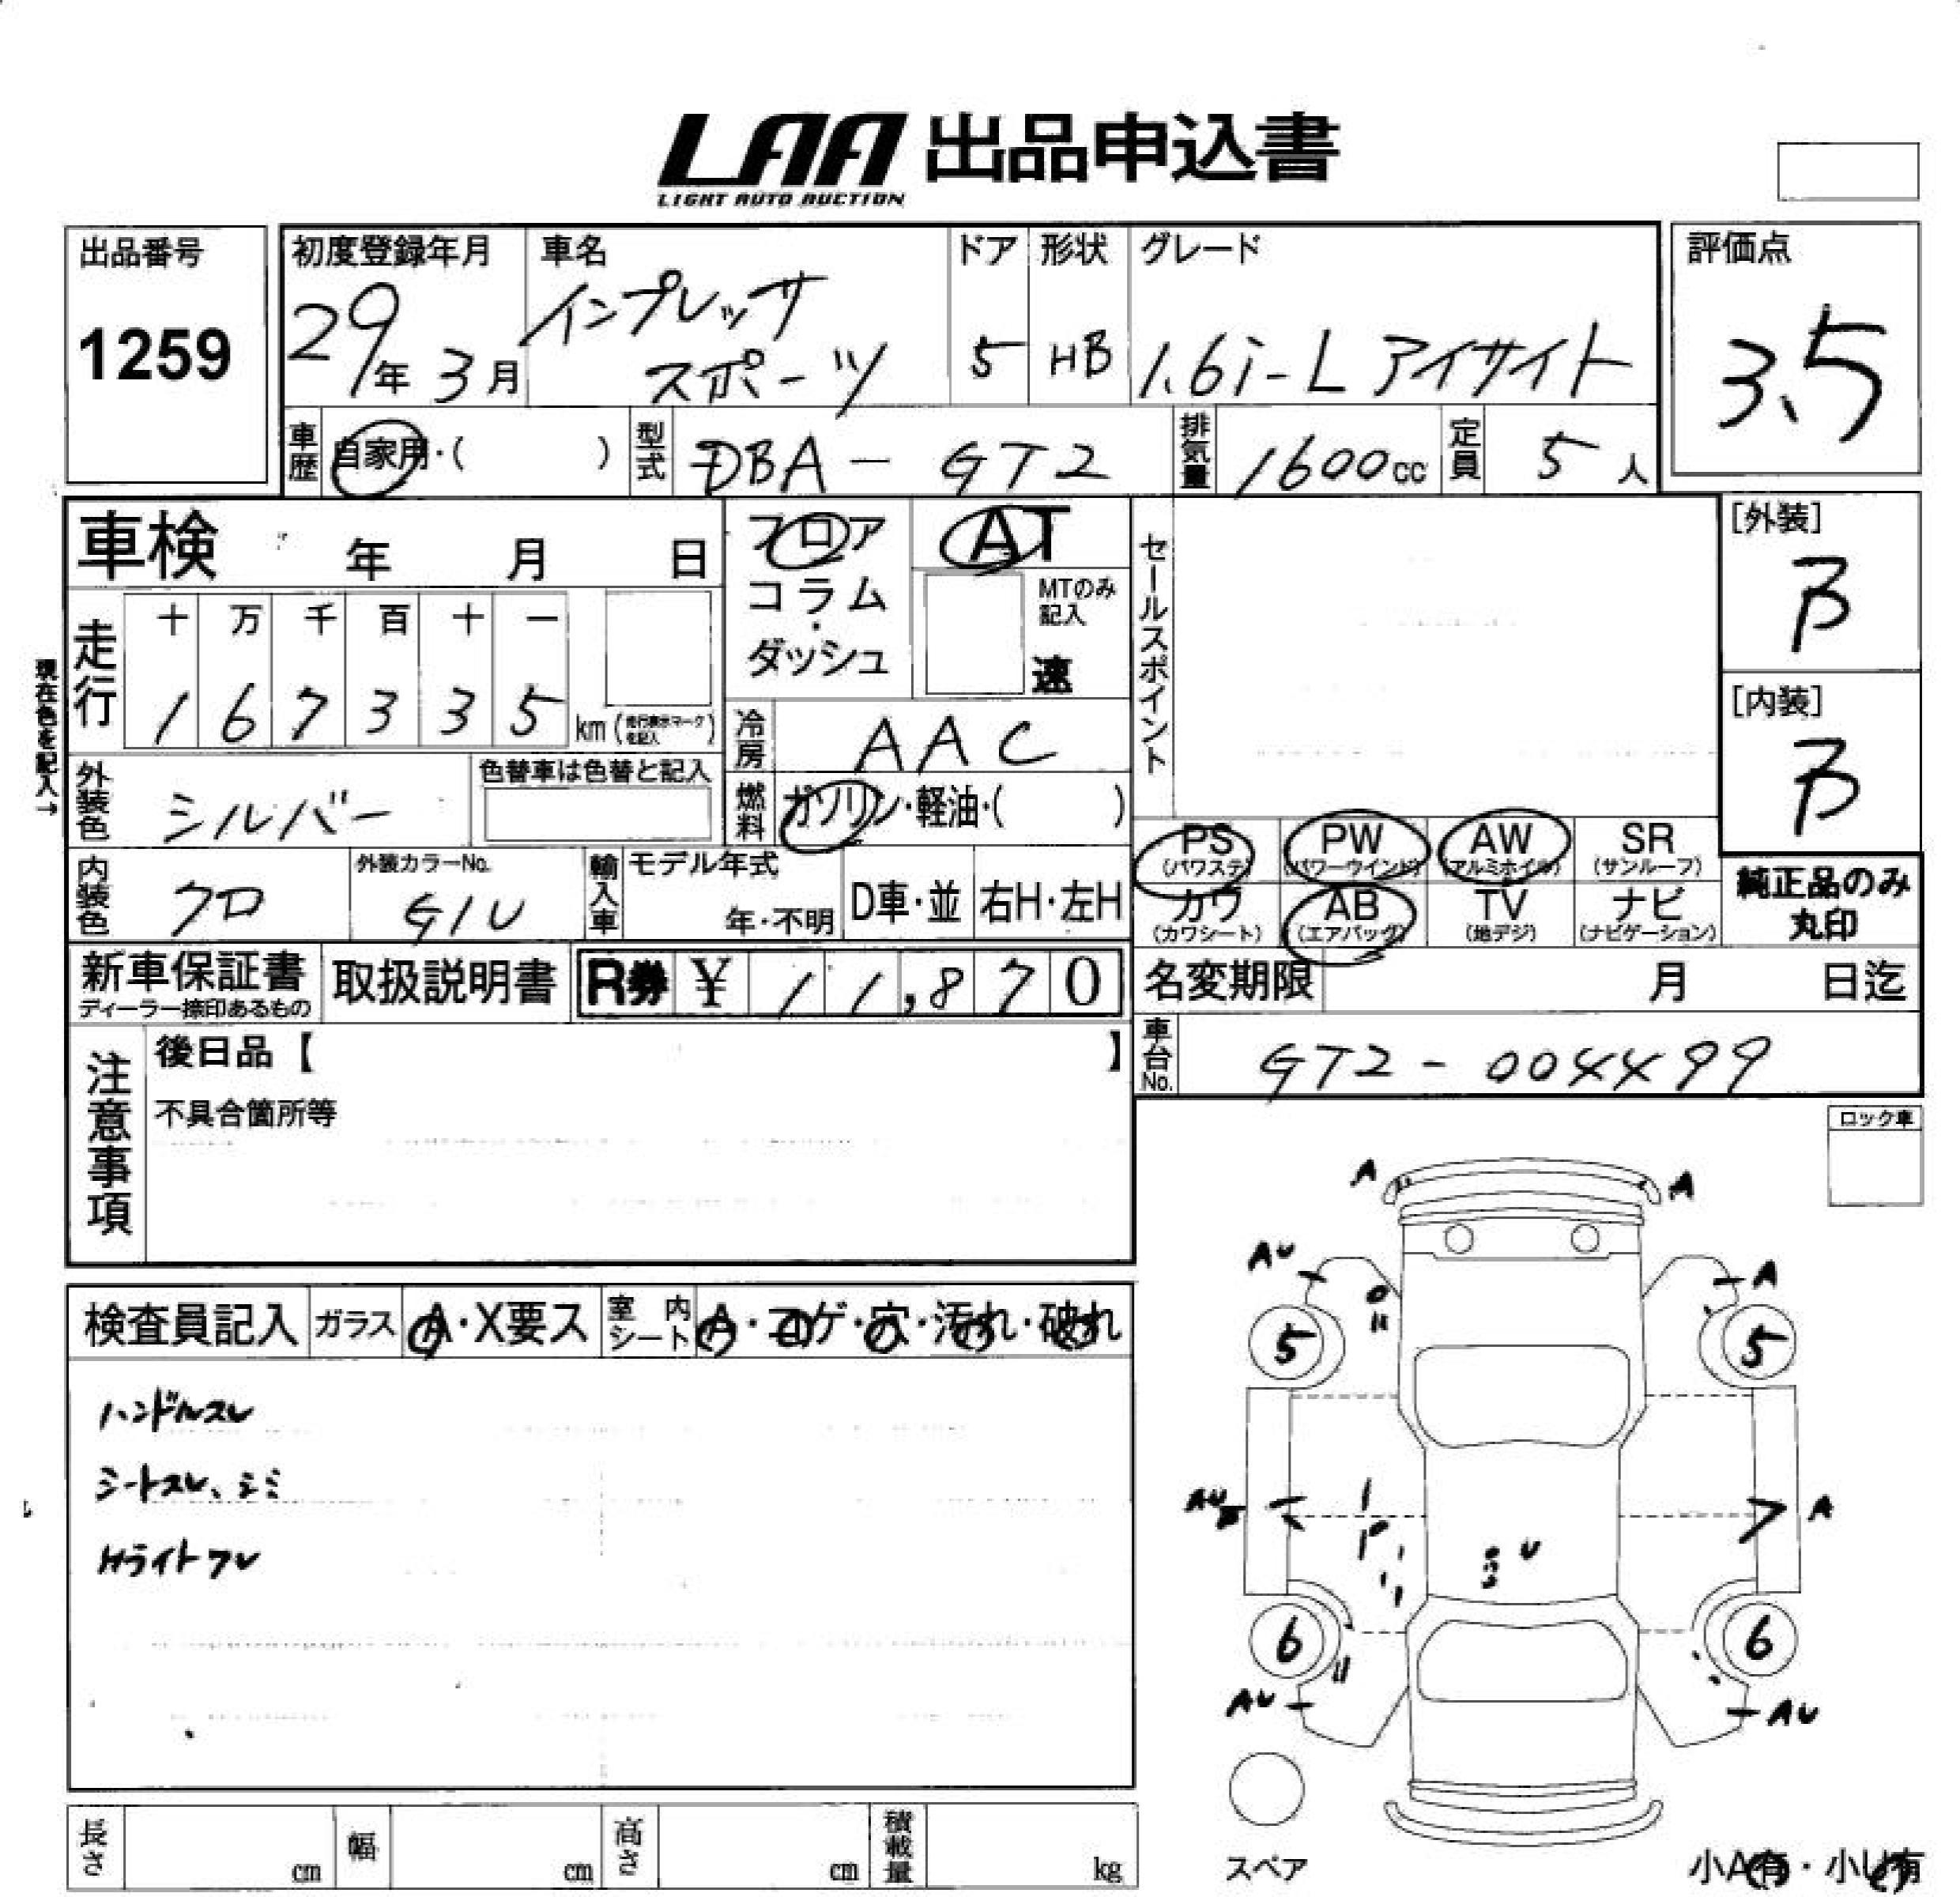 LAA 出品申込書
LIGHT AUTO AUCTION
出品番号
1259
初度登録年月
29年 3月
車名
インプレッサ
スポーツ
ドア
5
形状
HB
グレード
1.6i-L アイサイト
評価点
3.5
車歴
自家用・( )
型式
DBA-GT2
排気量
1600cc
定員
5人
車検 年 月 日
フロア
コラム
・
ダッシュ
AT
MTのみ
記入
速
セールスポイント
[外装]
B
[内装]
B
現在色を記入→
走行
十 万 千 百 十 一
1 6 7 3 3 5 km (走行表示マークを記入)
冷房
AAC
外装色
シルバー
色替車は色替と記入
燃料
ガソリン・軽油・( )
PS
(パワステ)
PW
(パワーウインド)
AW
(アルミホイル)
SR
(サンルーフ)
カワ
(カワシート)
AB
(エアバッグ)
TV
(地デジ)
ナビ
(ナビゲーション)
純正品のみ
丸印
内装色
クロ
外装カラーNo.
G1U
輸入車
モデル年式
年・不明
D車・並
右H・左H
新車保証書
ディーラー捺印あるもの
取扱説明書
R券 ¥ 11,870
名変期限 月 日迄
車台No.
GT2-004499
注意事項
後日品【 】
不具合箇所等
ロック車
検査員記入
ガラス
A・X要ス
室内シート
A・コゲ・穴・汚れ・破れ
ハンドルスレ
シートスレ、シミ
Hライトクレ
A
A
AU
A
5
5
AU
A
U
6
6
AU
AU
スペア
小A有・小U有
長さ cm
幅 cm
高さ cm
積載量 kg